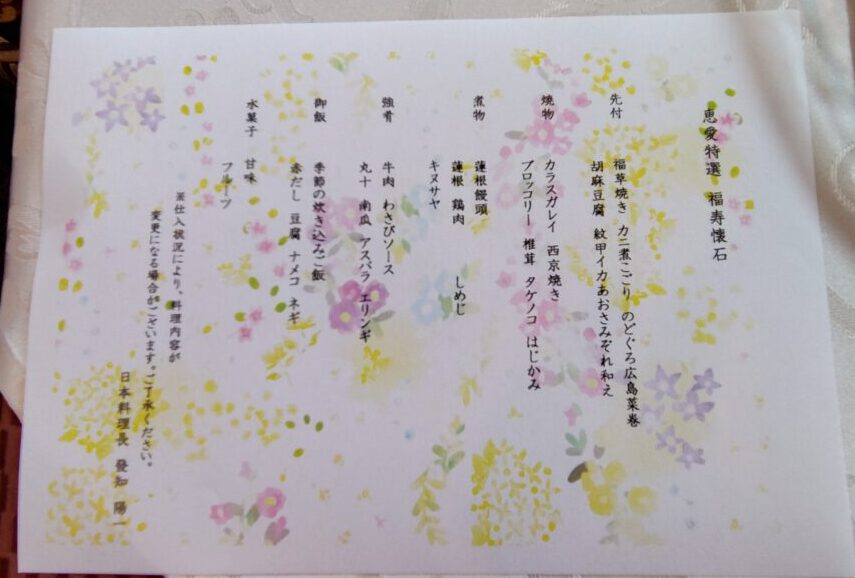 恵愛特選 福寿懐石
先付 福草焼き カニ煮こごり のどぐろ広島菜巻
胡麻豆腐 紋甲イカあおさみぞれ和え
焼物 カラスガレイ 西京焼き
ブロッコリー 椎茸 タケノコ はじかみ
煮物 蓮根饅頭
蓮根 鶏肉 しめじ
キヌサヤ
強肴 牛肉 わさびソース
丸十 南瓜 アスパラ エリンギ
御飯 季節の炊き込みご飯
赤だし 豆腐 ナメコ ネギ
水菓子 甘味
フルーツ
※仕入状況により、料理内容が
変更になる場合がございます。ご了承ください。
日本料理長 發知 陽一